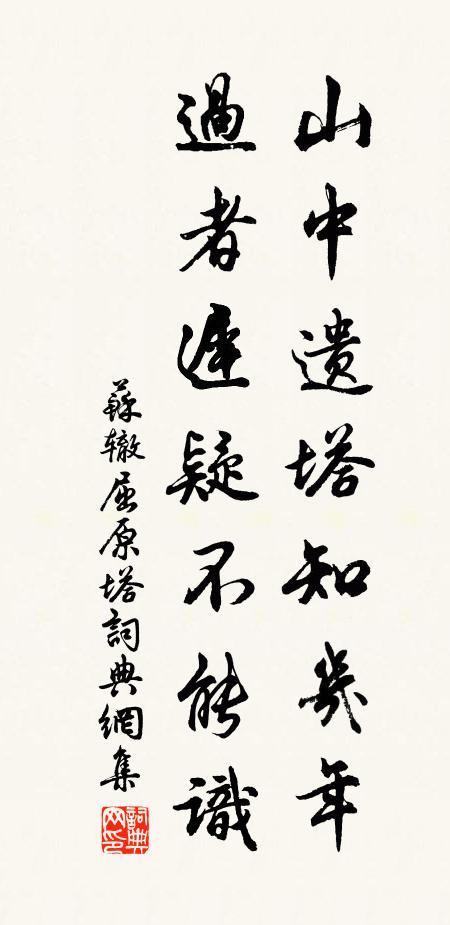 山中遗塔知幾年
過者遲疑不能識
蘇辙屈原塔詞典網集
詞典网印